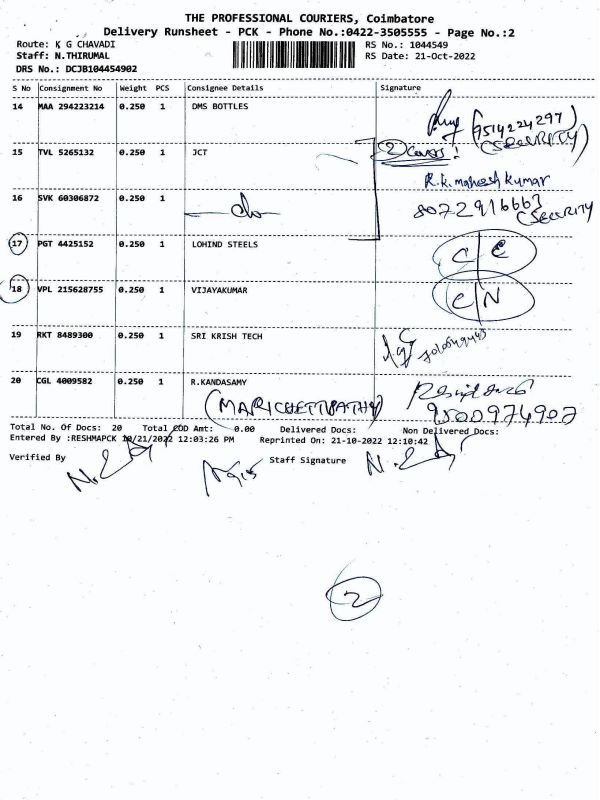 THE PROFESSIONAL COURIERS, Coimbatore
Delivery Runsheet - PCK - Phone No.:0422-3505555 - Page No.:2
Route: K G CHAVADI
RS No.: 1044549
Staff: N.THIRUMAL
RS Date: 21-Oct-2022
DRS No.: DCJB104454902
S No Consignment No Weight PCS Consignee Details Signature
14 MAA 294223214 0.250 1 DMS BOTTLES
9514224297
(SECURITY)
15 TVL 5265132 0.250 1 JCT
2 Covers !
R.K. mahesh Kumar
16 SVK 60306872 0.250 1
8072916663
(SECURITY
17 PGT 4425152 0.250 1 LOHIND STEELS
C E
18 VPL 215628755 0.250 1 VIJAYAKUMAR
C N
19 RKT 8489300 0.250 1 SRI KRISH TECH
20 CGL 4009582 0.250 1 R.KANDASAMY
(MARICHETTIPATHY)
9500974907
Total No. Of Docs: 20 Total COD Amt: 0.00 Delivered Docs: Non Delivered Docs:
Entered By :RESHMAPCK 10/21/2022 12:03:26 PM Reprinted On: 21-10-2022 12:10:42
Verified By Staff Signature
2